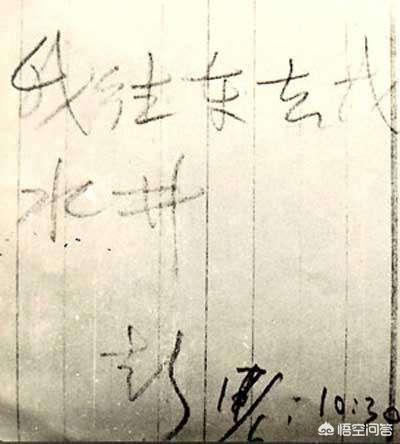 我往东去找
水井
彭 10:30
悟空问答